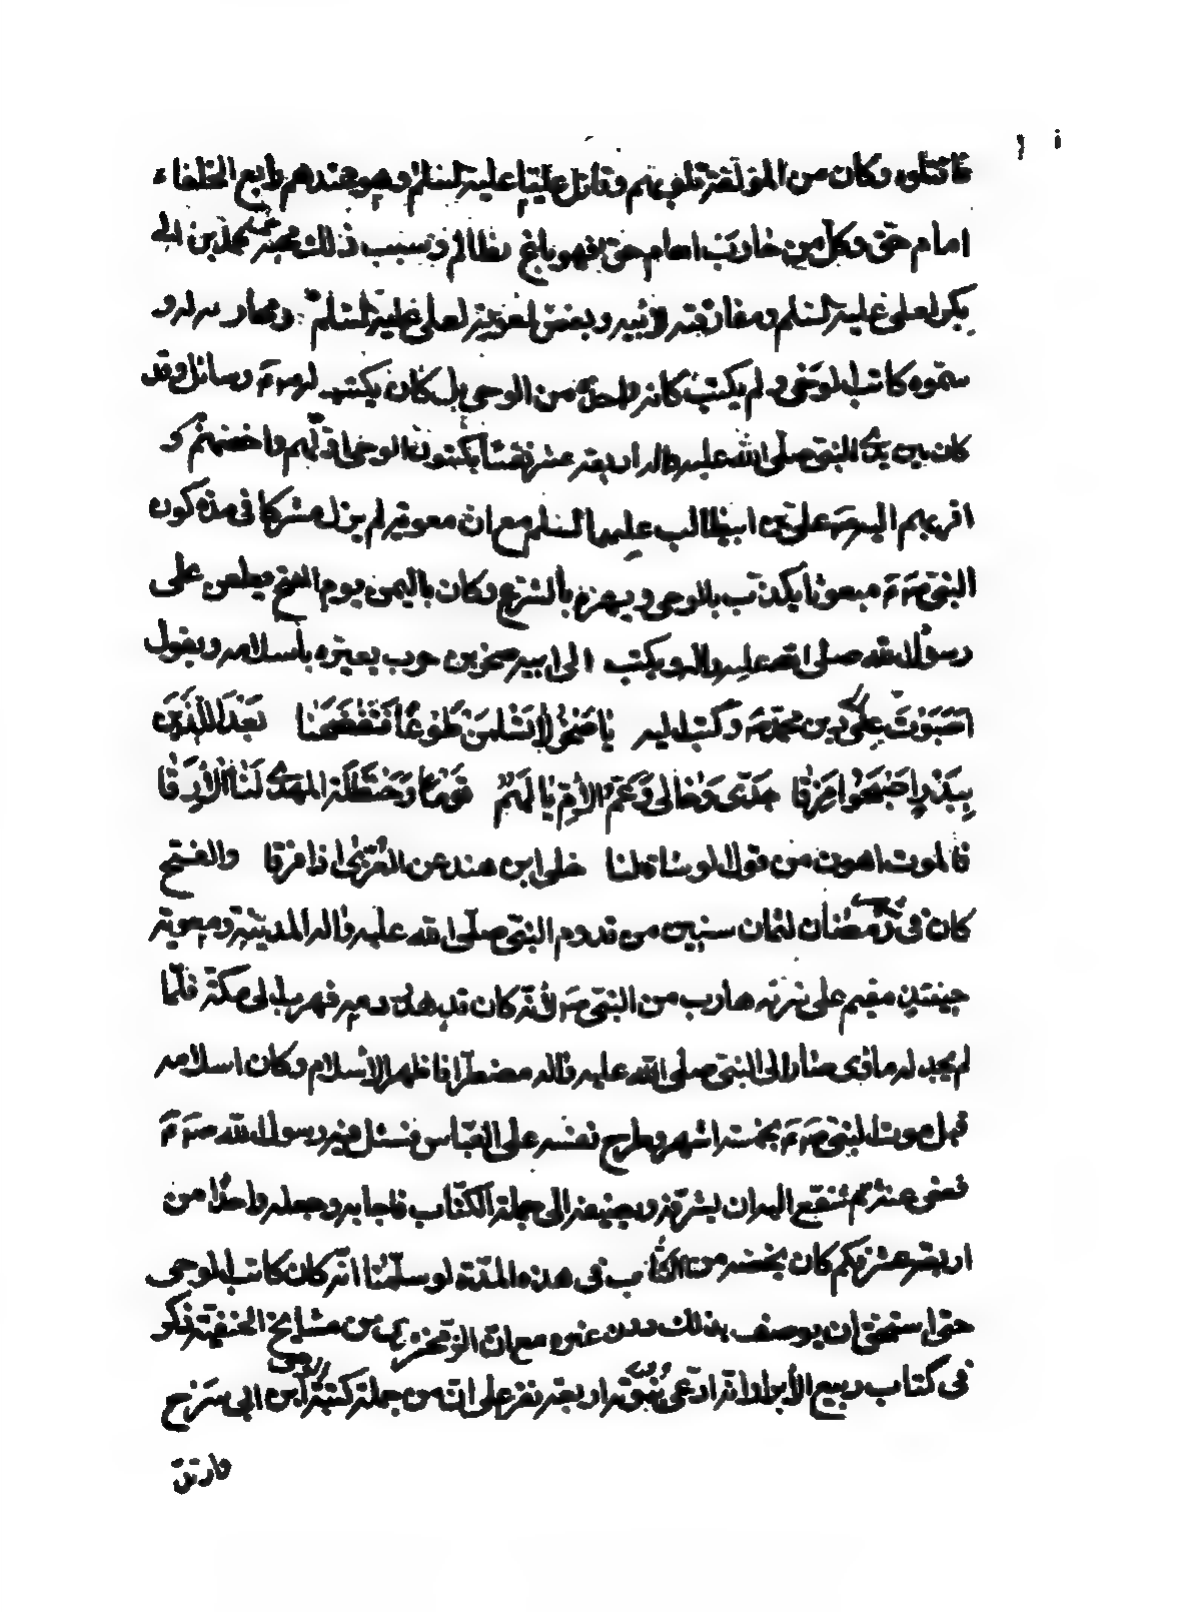 فاقتلوه وكان من المؤلفة قلوبهم وقاتل عليّا عليه السلم وهو عندهم رابع الخلفاء
امام حق وكل من حارب امام حق فهو باغ ظالم وسبب ذلك محبة محمد بن ابي
بكر لعلي عليه السلم ومفارقته لابيه وبغض لعلي عليه السلم
سمّوه كاتب الوحي ولم يكتب كلمة من الوحي بل كان يكتب له ص م رسائل وقد
كان بين يدي النبي صلّى الله عليه واله اربعة عشر نفسا يكتبون الوحي اولهم واخصهم و
اقربهم اليه ص علي بن ابيطالب عليهما السلم مع ان معوية لم يزل مشركا في مدة كون
النبي ص م مبعوثا يكذب بالوحي ويهزء بالشرع وكان باليمن يوم الفتح يطعن على
رسول الله صلى الله عليه واله ويكتب الى ابيه صخر بن حرب يعيره باسلامه ويقول
اصَبَوْتَ الى دين محمد ص وكتب اليه يا صَخْرُ لا تُسْلِمَنْ طَوْعًا فَتَفْضَحَنا بَعْدَ الَّذِينَ
بِبَدْرٍ اصْبَحُوا مِزَقا جَدّي وَخالي وَعَمُّ الأُمِّ يا لَهُمُ قَوْمًا وَحَنْظَلَةَ المهدي لَنَا الأَرَقا
فالموت اهون من قول الوشاة لنا خلى ابن هند عن العُزّى اذا فرقا والفتح
كان في رمضان لثمان سنين من قدوم النبي صلّى الله عليه واله المدينة ومعوية
حينئذ مقيم على شركه هارب من النبي ص لانّه كان قد هدر دمه فهرب الى مكة فلمّا
لم يجد له مأوى صار الى النبي صلّى الله عليه واله مضطرّا فاظهر الاسلام وكان اسلامه
قبل موت النبي ص م بخمسة اشهر وطرح نفسه على العباس فسئل فيه رسول الله ص م
فعفى عنه ثم شفع اليه ان يشرّفه ويضيفه الى جملة الكتّاب فاجابه وجعله واحدًا من
اربعة عشر فكم كان يخصه من الكتاب في هذه المدة لو سلّمنا انّه كان كاتب الوحي
حتى استحق ان يوصف بذلك دون غيره مع ان الزمخشري من مشايخ الحنفية ذكر
في كتاب ربيع الأبرار انه ادعى نبوّته اربعة نفر على ان من جملة كتبة الوحي ابن ابي سرح
وارتد